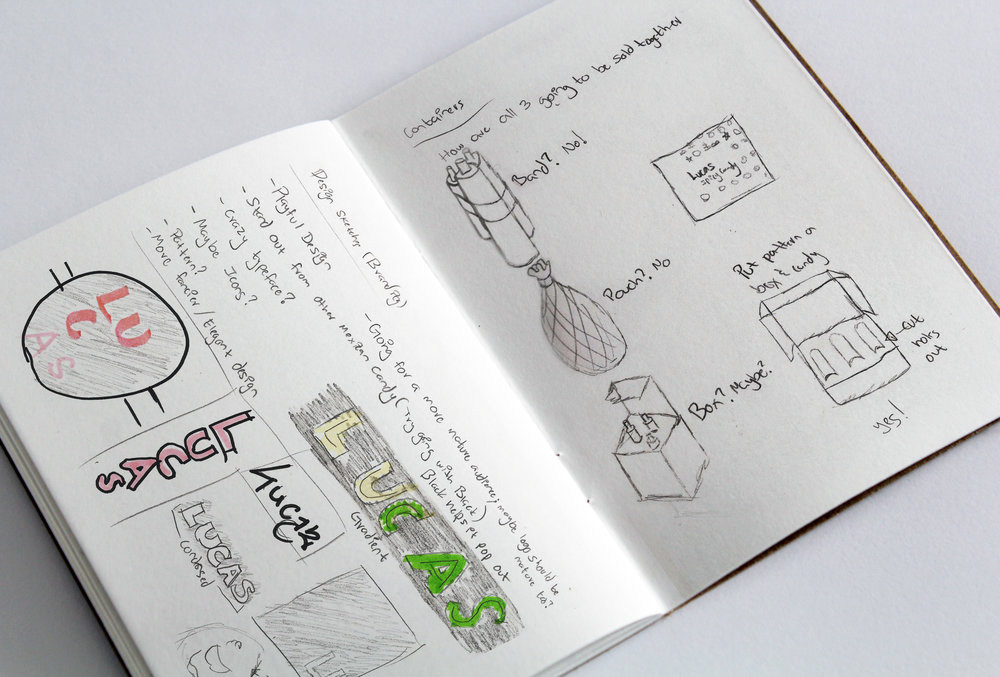 Design sketches (Branding)
- Playful Design
- Stand out from other mexican candy (Try going with Black)
Black helps it pop out
- Crazy typeface?
- Maybe Icons?
- Pattern?
- More fancier / Elegant design
- Going for a more mature audience; maybe logo should be
mature to?
LUCAS
Gradient
LU
C
AS
LUCAS
Lucas
LUCAS
Containers
How are all 3 going to be sold together
Band? No!
Pouch? No
Box? Maybe?
Lucas
spicy candy
Put pattern on
box & candy
cut
holes
out
yes!